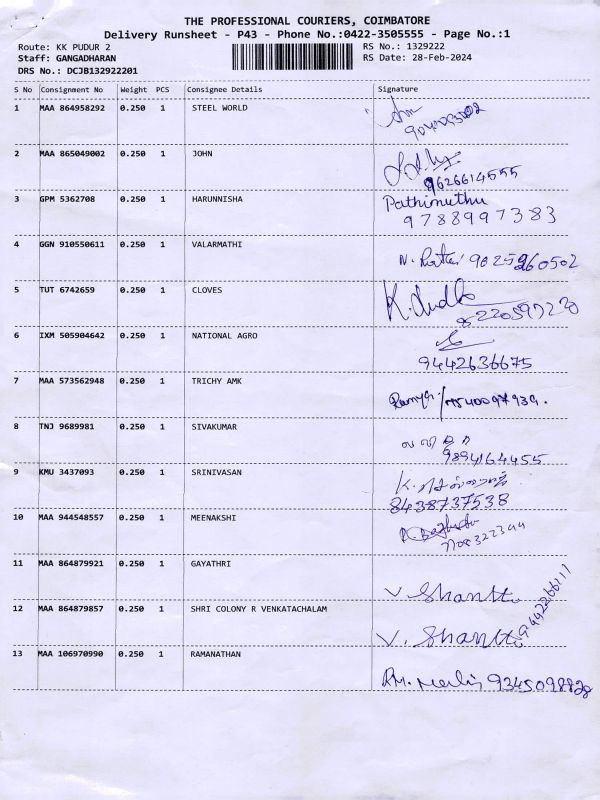 THE PROFESSIONAL COURIERS, COIMBATORE
Delivery Runsheet - P43 - Phone No.:0422-3505555 - Page No.:1
Route: KK PUDUR 2 RS No.: 1329222
Staff: GANGADHARAN RS Date: 28-Feb-2024
DRS No.: DCJB132922201
S No Consignment No Weight PCS Consignee Details Signature
1 MAA 864958292 0.250 1 STEEL WORLD
2 MAA 865049002 0.250 1 JOHN
9626614555
3 GPM 5362708 0.250 1 HARUNNISHA Pathimuthu
9788997383
4 GGN 910550611 0.250 1 VALARMATHI
5 TUT 6742659 0.250 1 CLOVES
6 IXM 505904642 0.250 1 NATIONAL AGRO
9442636675
7 MAA 573562948 0.250 1 TRICHY AMK
8 TNJ 9689981 0.250 1 SIVAKUMAR
9894164455
9 KMU 3437093 0.250 1 SRINIVASAN
8438737538
10 MAA 944548557 0.250 1 MEENAKSHI
7708322344
11 MAA 864879921 0.250 1 GAYATHRI
V. Shantt
12 MAA 864879857 0.250 1 SHRI COLONY R VENKATACHALAM
V. Shantt 9442266111
13 MAA 106970990 0.250 1 RAMANATHAN
9345098828